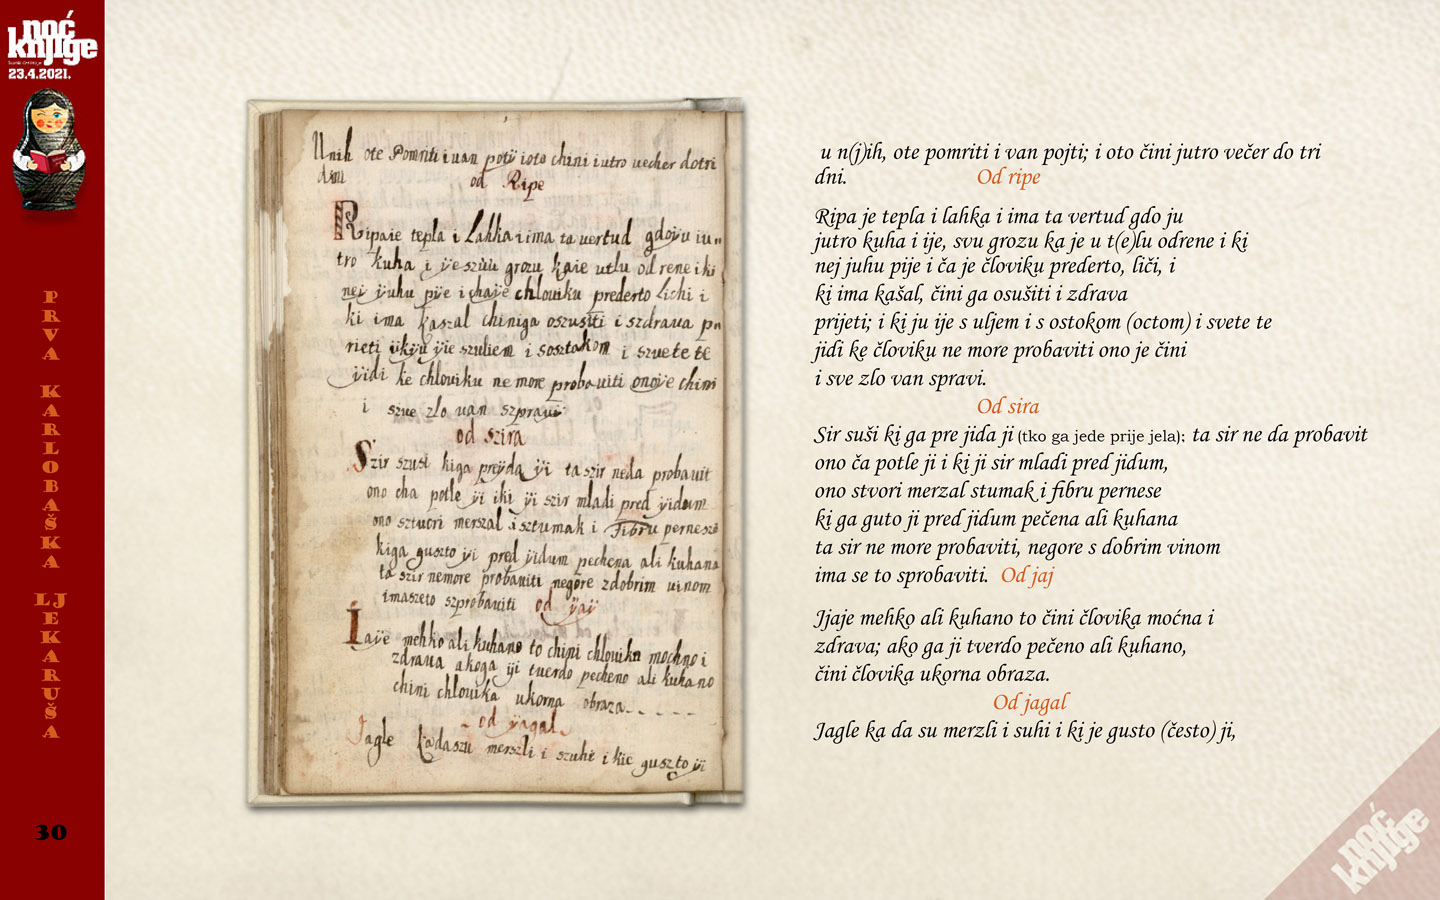 noć
knjige
23.4.2021.
PRVA KARLOBAŠKA LJEKARUŠA
30
Unih ote Pomriti i van potÿ ioto chini iutro vecher dotri
dni
od Ripe
Ripaie tepla i Lahka i ima ta vertud gdoÿu iu„
tro kuha i ÿe szúú grozu kaie utlu odrene i ki
nei ÿuhu pÿe i chaÿe chloviku prederto Lichi i
ki ima kaszal chiniga oszusiti i szdrava p„
rieti ikÿu ÿie szuliem i sosztakom i szvete te
ÿidi ke chloviku ne more probaviti onoÿe chini
i szve zlo van szpravi
od szira
Szir szusi kiga preÿda ÿi ta szir neda probavit
ono cha potle ÿi i ki ÿi szir mladi pred ÿidum
ono sztvori merszal sztumak i Fibru pernesze
kiga guszto ÿi pred ÿidum pechena ali kuhana
ta szir nemore probaviti negore zdobrim vinom
imaszeto szprobaviti od ÿaÿ
Iaÿe mehko ali kuhano to chini chlovika mochno i
zdrava akoga ÿi tverdo pecheno ali kuhano
chini chlovika ukorna obraza
od ÿagal
Jagle kadaszu merszli i szuhi i kie guszto ÿi
u n(j)ih, ote pomriti i van pojti; i oto čini jutro večer do tri
dni. Od ripe
Ripa je tepla i lahka i ima ta vertud gdo ju
jutro kuha i ije, svu grozu ka je u t(e)lu odrene i ki
nej juhu pije i ča je človiku prederto, liči, i
ki ima kašal, čini ga osušiti i zdrava
prijeti; i ki ju ije s uljem i s ostokom (octom) i svete te
jidi ke človiku ne more probaviti ono je čini
i sve zlo van spravi.
Od sira
Sir suši ki ga pre jida ji (tko ga jede prije jela); ta sir ne da probavit
ono ča potle ji i ki ji sir mladi pred jidum,
ono stvori merzal stumak i fibru pernese
ki ga guto ji pred jidum pečena ali kuhana
ta sir ne more probaviti, negore s dobrim vinom
ima se to sprobaviti. Od jaj
Jjaje mehko ali kuhano to čini človika moćna i
zdrava; ako ga ji tverdo pečeno ali kuhano,
čini človika ukorna obraza.
Od jagal
Jagle ka da su merzli i suhi i ki je gusto (često) ji,
noć
knjige